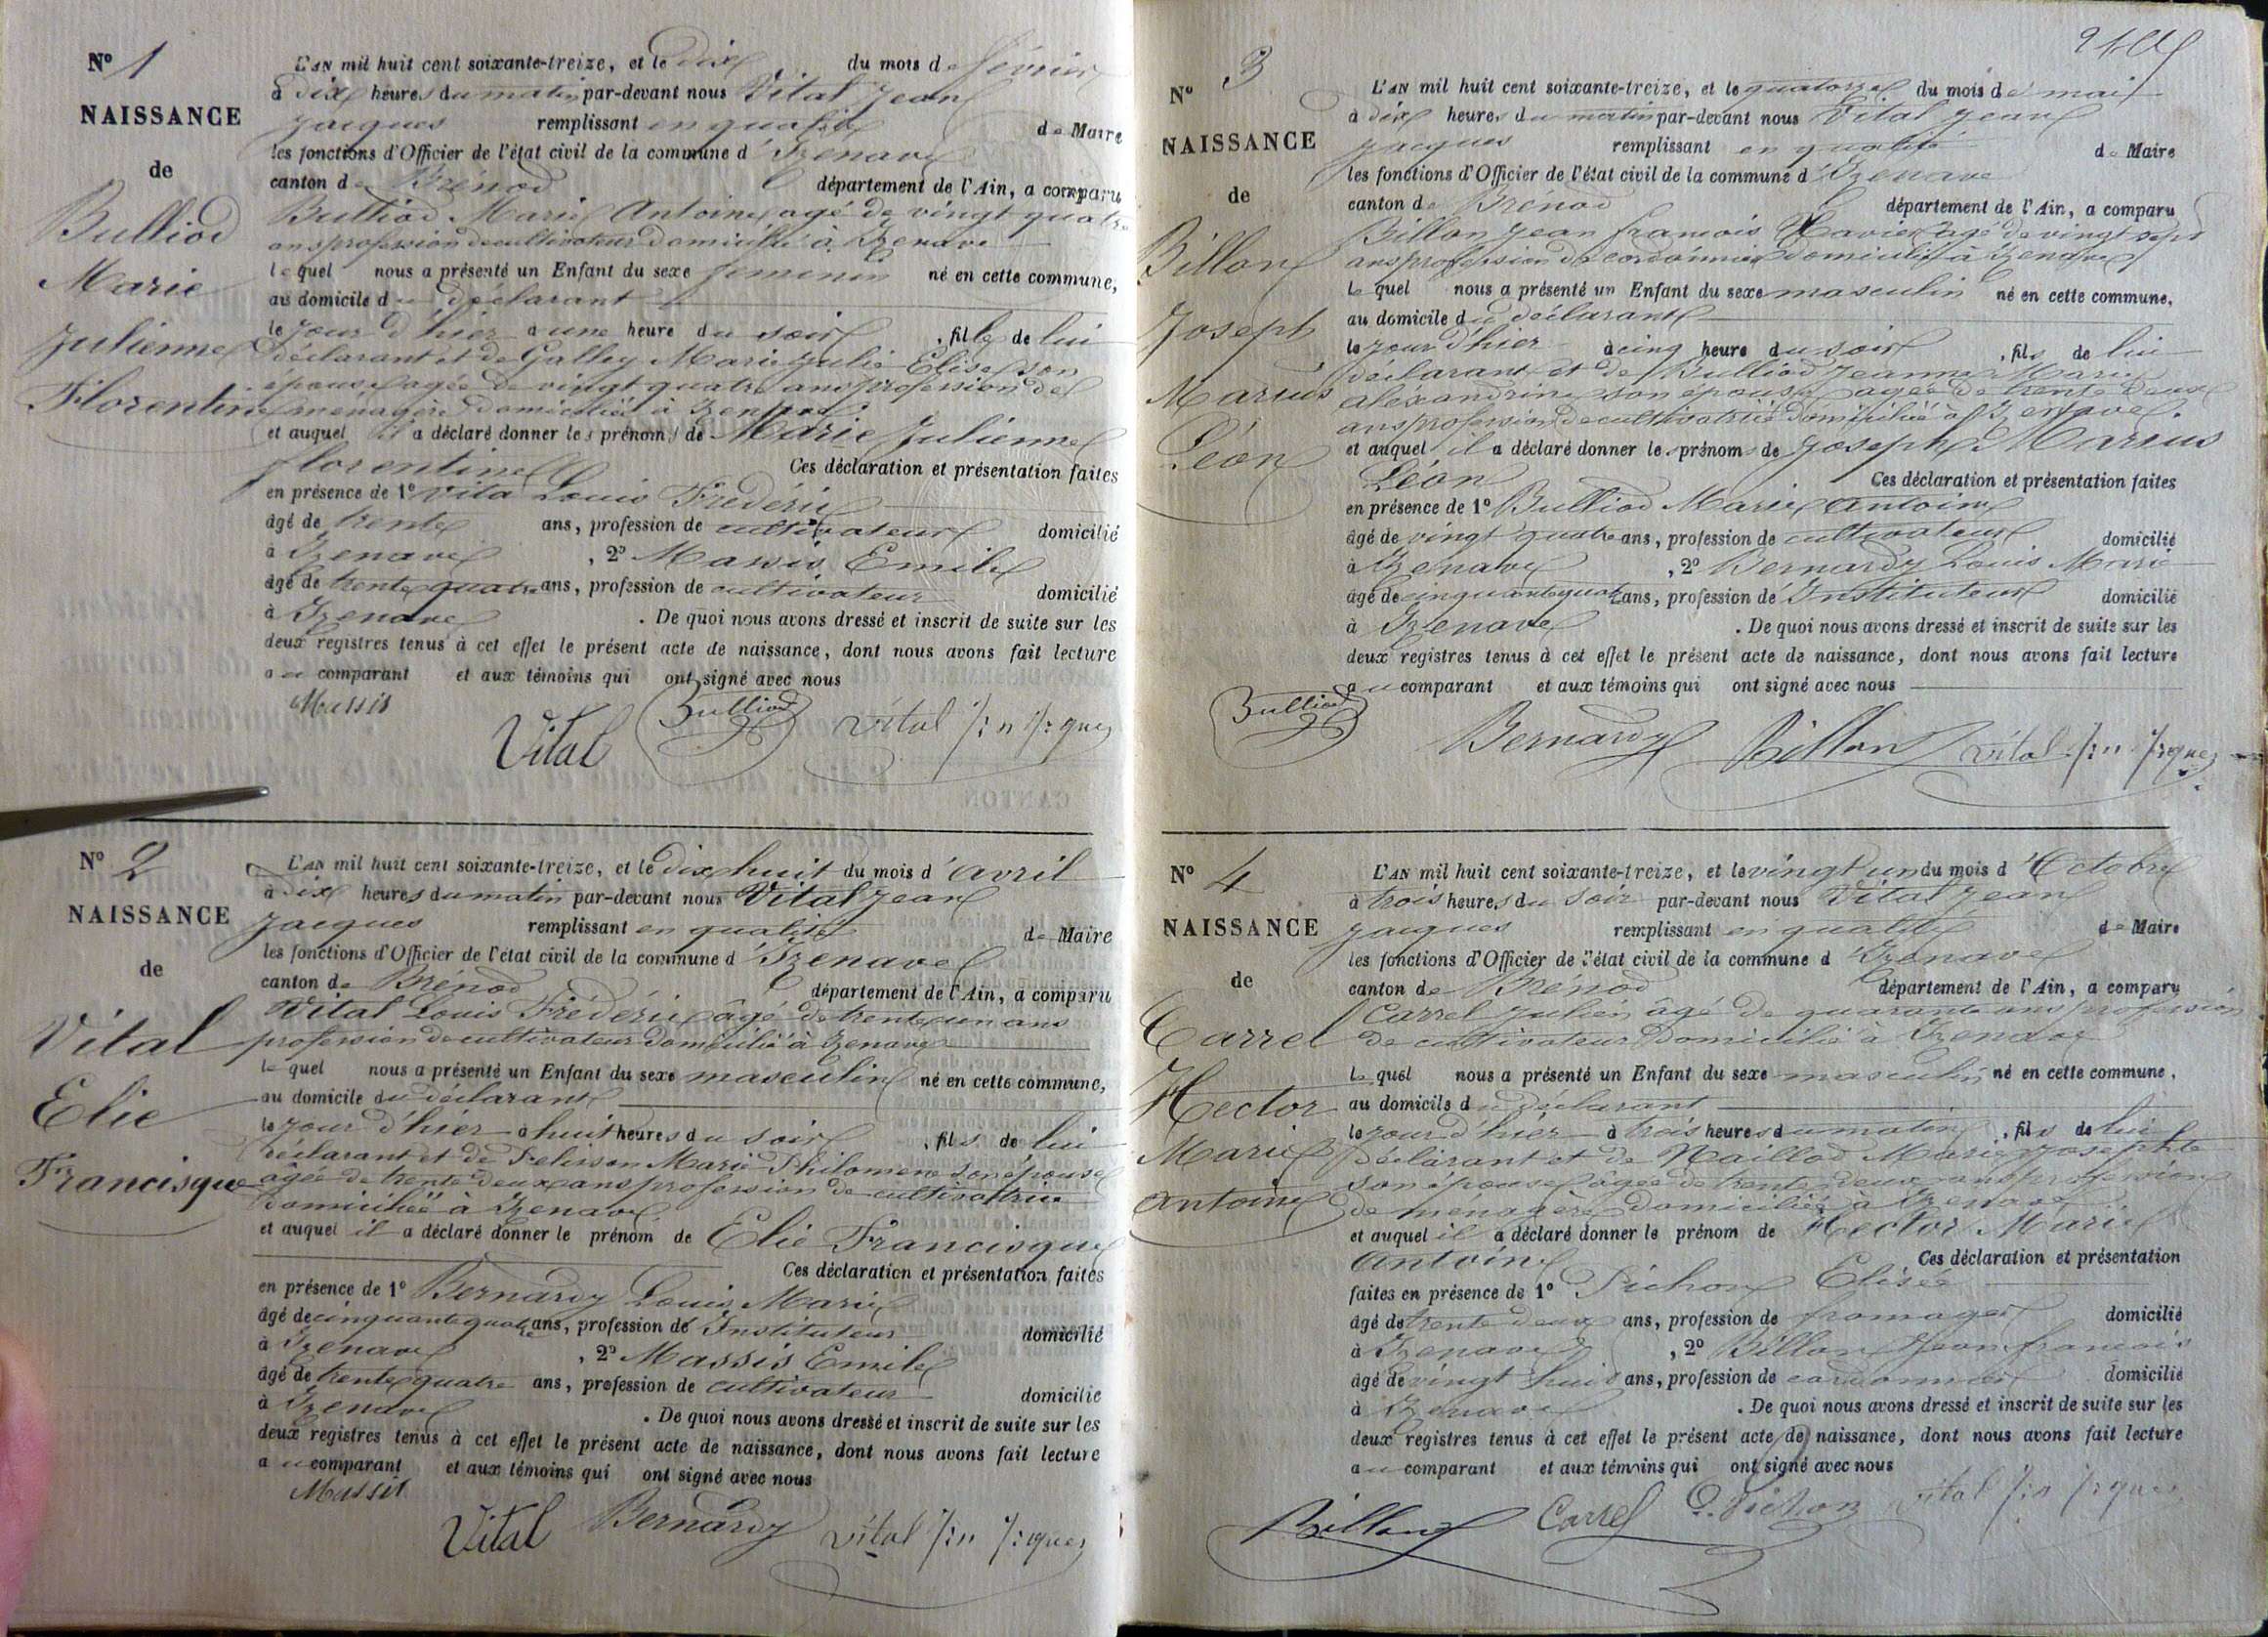 N° 1
NAISSANCE
de
Bulliod
Marie
Julienne
Florentine
L'AN mil huit cent soixante-treize, et le dix du mois de février
à dix heures du matin par-devant nous Vital Jean
Jacques remplissant en qualité de Maire
les fonctions d'Officier de l'état civil de la commune d'Izenave
canton de Brénod département de l'Ain, a comparu
Bulliod Marie Antoine agé de vingt quatre
ans profession de cultivateur domicilié à Izenave
lequel nous a présenté un Enfant du sexe feminin né en cette commune,
au domicile du déclarant
le jour d'hier à une heure du soir, fille de lui
déclarant et de Galley Marie Julie Elise son
épouse agée de vingt quatre ans profession de
ménagère domiciliée à Izenave
et auquel il a déclaré donner les prénoms de Marie Julienne
florentine Ces déclaration et présentation faites
en présence de 1° Vital Louis Frédéric
âgé de trente ans, profession de cultivateur domicilié
à Izenave, 2° Massis Emile
âgé de trente quatre ans, profession de cultivateur domicilié
à Izenave. De quoi nous avons dressé et inscrit de suite sur les
deux registres tenus à cet effet le présent acte de naissance, dont nous avons fait lecture
au comparant et aux témoins qui ont signé avec nous
Massis
Vital Bulliod Vital Jn Jques
N° 2
NAISSANCE
de
Vital
Elie
Francisque
L'AN mil huit cent soixante-treize, et le dix huit du mois d'avril
à dix heures du matin par-devant nous Vital Jean
Jacques remplissant en qualité de Maire
les fonctions d'Officier de l'état civil de la commune d'Izenave
canton de Brénod département de l'Ain, a comparu
Vital Louis Frédéric âgé de trente un ans
profession de cultivateur domicilié à Izenave
lequel nous a présenté un Enfant du sexe masculin né en cette commune,
au domicile du déclarant
le jour d'hier à huit heures du soir, fils de lui
déclarant et de Marie Philomene son épouse
âgée de trente deux ans profession de cultivatrice
domiciliée à Izenave
et auquel il a déclaré donner le prénom de Elie Francisque
Ces déclaration et présentation faites
en présence de 1° Bernardy Louis Marie
âgé de cinquante quatre ans, profession de Instituteur domicilié
à Izenave, 2° Massis Emile
âgé de trente quatre ans, profession de cultivateur domicilié
à Izenave. De quoi nous avons dressé et inscrit de suite sur les
deux registres tenus à cet effet le présent acte de naissance, dont nous avons fait lecture
au comparant et aux témoins qui ont signé avec nous
Massis
Vital Bernardy Vital Jn Jques
N° 3
NAISSANCE
de
Billon
Joseph
Marius
Léon
L'AN mil huit cent soixante-treize, et le quatorze du mois de mai
à dix heures du matin par-devant nous Vital Jean
Jacques remplissant en qualité de Maire
les fonctions d'Officier de l'état civil de la commune d'Izenave
canton de Brénod département de l'Ain, a comparu
Billon Jean francois Xavier agé de vingt sept
ans profession de cordonnier domicilié à Izenave
Lequel nous a présenté un Enfant du sexe masculin né en cette commune,
au domicile du déclarant
le jour d'hier à cinq heure du soir, fils de lui
déclarant et de Bulliod Jeanne Marie
alexandrine son épouse agée de trente deux
ans profession de cultivatrice domiciliée à Izenave.
et auquel il a déclaré donner le prénom de Joseph Marius
Léon Ces déclaration et présentation faites
en présence de 1° Bulliod Marie Antoine
âgé de vingt quatre ans, profession de cultivateur domicilié
à Izenave, 2° Bernardy Louis Marie
âgé de cinquante quatre ans, profession de Instituteur domicilié
à Izenave. De quoi nous avons dressé et inscrit de suite sur les
deux registres tenus à cet effet le présent acte de naissance, dont nous avons fait lecture
au comparant et aux témoins qui ont signé avec nous
Bulliod Bernardy Billon Vital Jn Jques
N° 4
NAISSANCE
de
Carrel
Hector
Marie
Antoine
L'AN mil huit cent soixante-treize, et le vingt un du mois d'Octobre
à trois heures du soir par-devant nous Vital Jean
Jacques remplissant en qualité de Maire
les fonctions d'Officier de l'état civil de la commune d'Izenave
canton de Brénod département de l'Ain, a comparu
Carrel Julien âgé de quarante ans profession
de cultivateur domicilié à Izenave
Lequel nous a présenté un Enfant du sexe masculin né en cette commune,
au domicile du déclarant
le jour d'hier à trois heures du matin, fils de lui
déclarant et de Maillod Marie Josephte
son épouse âgée de trente deux ans profession
de ménagère domiciliée à Izenave
et auquel il a déclaré donner le prénom de Hector Marie
Antoine Ces déclaration et présentation
faites en présence de 1° Pichon Elisée
âgé de trente deux ans, profession de fromager domicilié
à Izenave, 2° Billon Jean francois
âgé de vingt huit ans, profession de cordonnier domicilié
à Izenave. De quoi nous avons dressé et inscrit de suite sur les
deux registres tenus à cet effet le présent acte de naissance, dont nous avons fait lecture
au comparant et aux témoins qui ont signé avec nous
Billon Carrel Pichon Vital Jn Jques